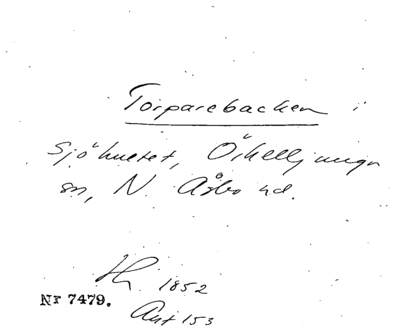 Torparebacken i
Sjöhuetet, Örkelljunga
sn, N. Åsbo hd.
Hi. 1852
Nr 7479.
Ant 153